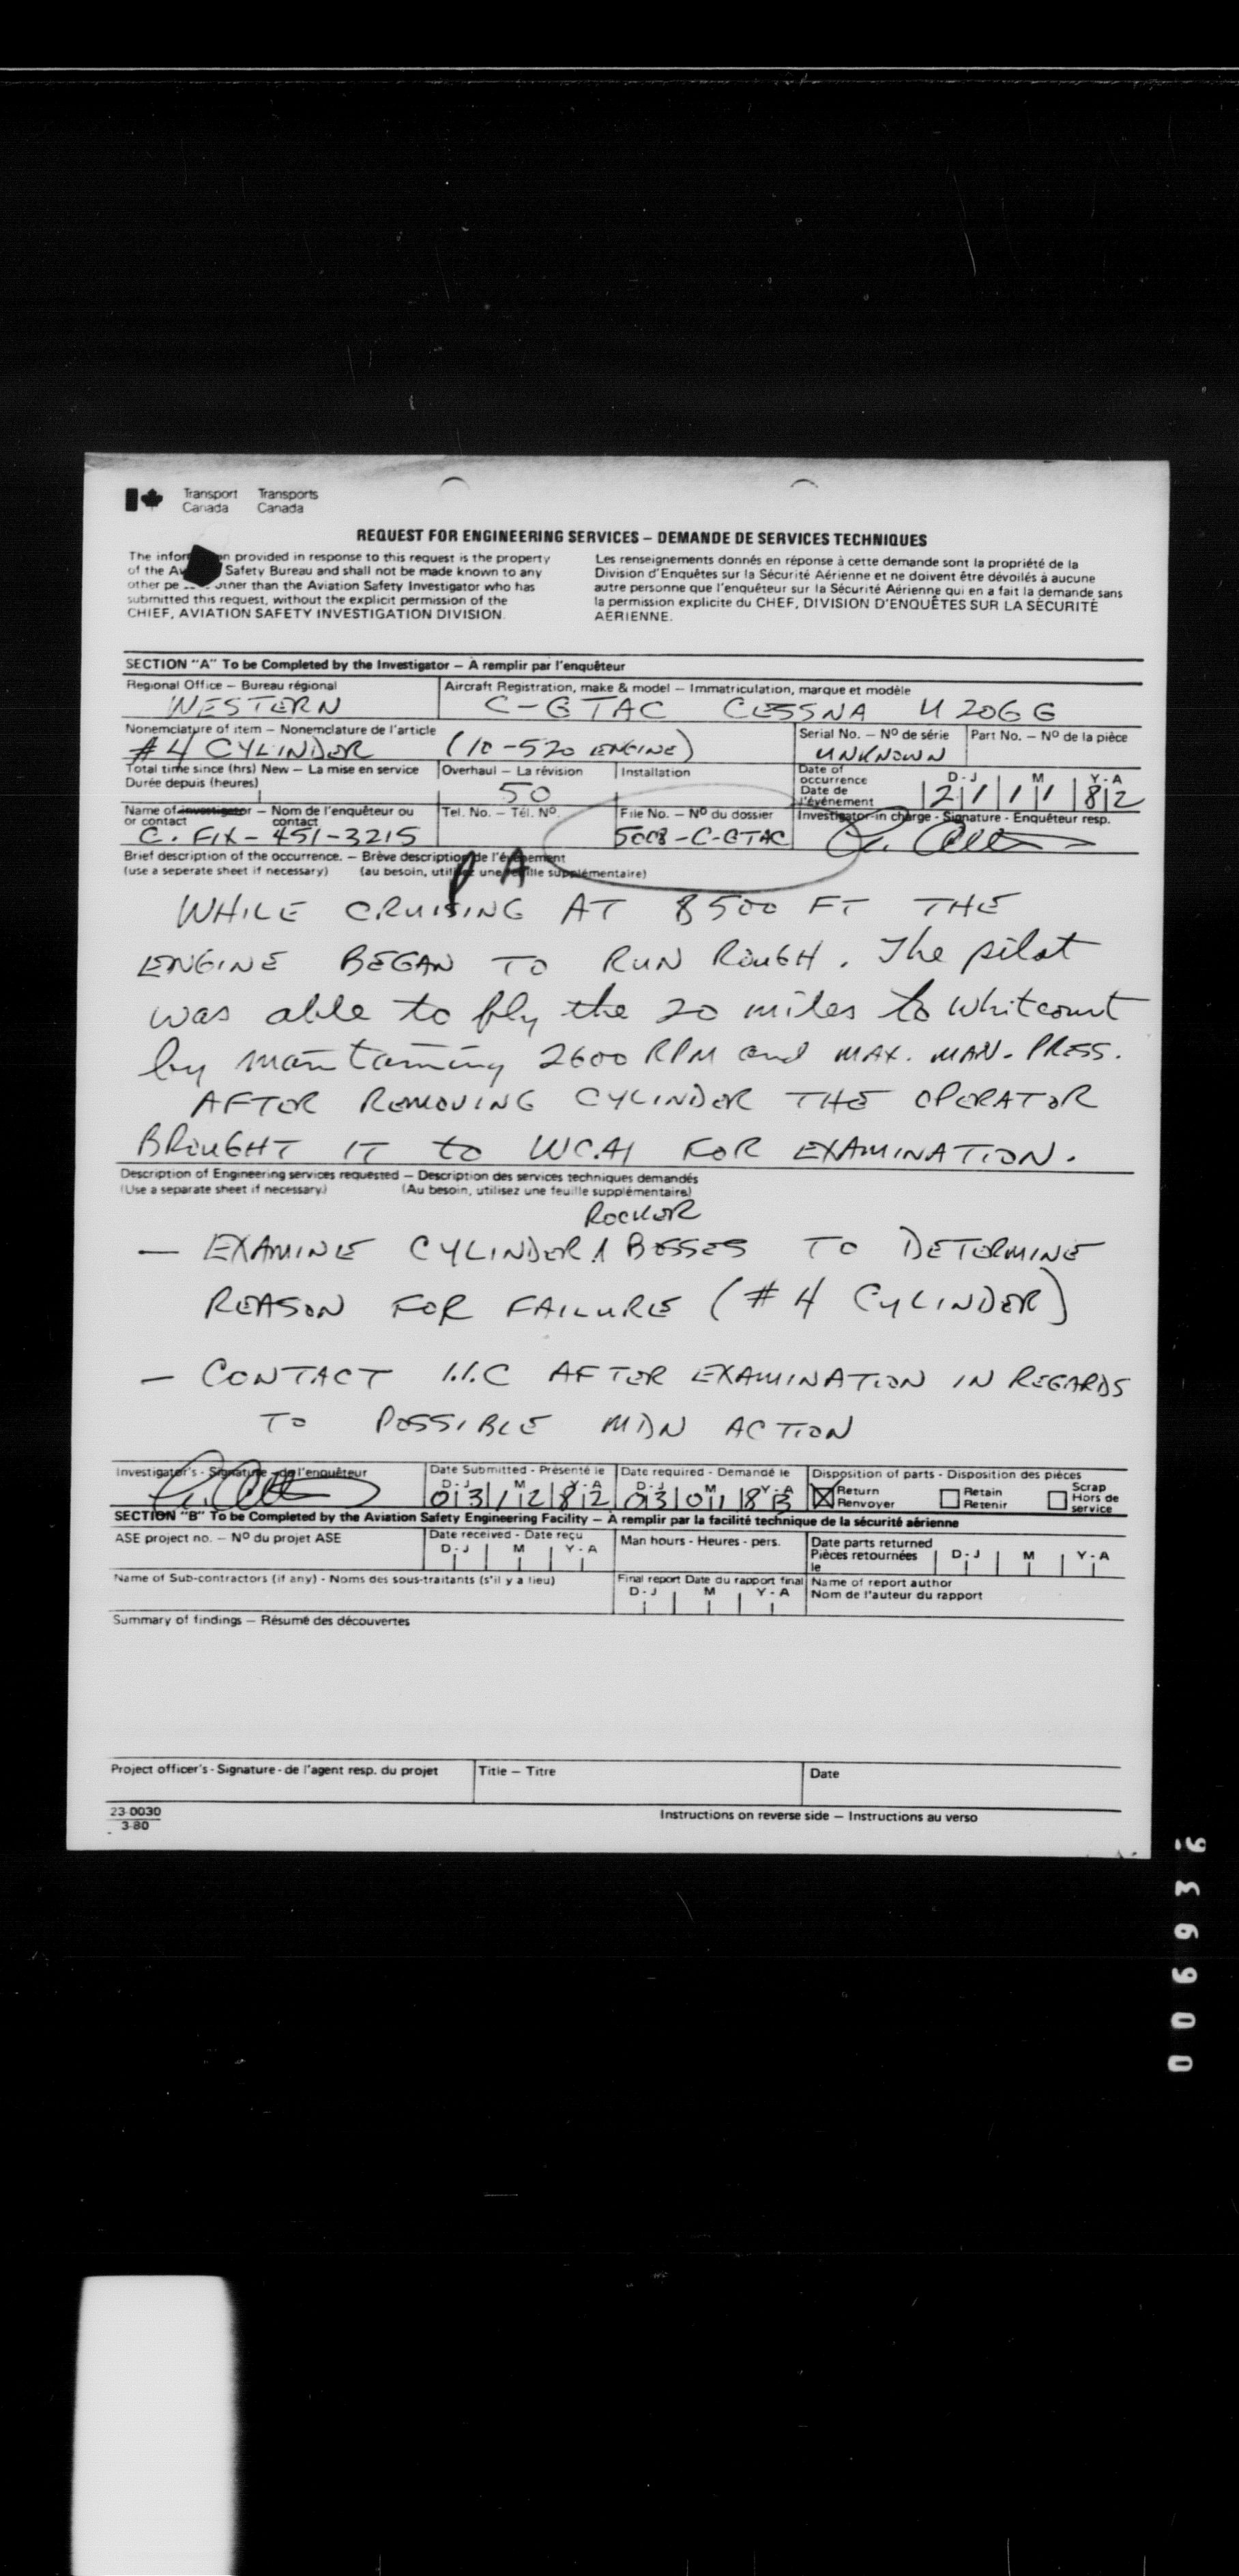 Transport Canada Transports Canada
REQUEST FOR ENGINEERING SERVICES – DEMANDE DE SERVICES TECHNIQUES
The information provided in response to this request is the property
of the Safety Bureau and shall not be made known to any
other than the Aviation Safety Investigator who has
submitted this request, without the explicit permission of the
CHIEF, AVIATION SAFETY INVESTIGATION DIVISION.
Les renseignements donnés en réponse à cette demande sont la propriété de la
Division d'Enquêtes sur la Sécurité Aérienne et ne doivent être dévoilés à aucune
autre personne que l'enquêteur sur la Sécurité Aérienne qui en a fait la demande sans
la permission explicite du CHEF, DIVISION D'ENQUÊTES SUR LA SÉCURITÉ
AÉRIENNE.
SECTION "A" To be Completed by the Investigator – À remplir par l'enquêteur
Regional Office – Bureau régional
WESTERN
Aircraft Registration, make & model – Immatriculation, marque et modèle
C-GTAC CESSNA U206G
Nomenclature of item – Nomenclature de l'article
#4 CYLINDER (IO-520 ENGINE)
Serial No. – Nº de série
UNKNOWN
Part No. – Nº de la pièce
Total time since (hrs) New – La mise en service
Durée depuis (heures)
Overhaul – La révision
50
Installation
Date of occurrence
Date de l'événement
D-J M Y-A
21 11 82
Name of investigator – Nom de l'enquêteur ou
or contact contact
C. FIX - 451-3215
Tel. No. – Tél. Nº
File No. – Nº du dossier
5008-C-GTAC
Investigator-in charge - Signature - Enquêteur resp.
Brief description of the occurrence. – Brève description de l'événement
(use a seperate sheet if necessary) (au besoin, utilisez une feuille supplémentaire)
WHILE CRUISING AT 8500 FT THE
ENGINE BEGAN TO RUN ROUGH. The pilot
was able to fly the 20 miles to Whitcourt
by maintaining 2600 RPM and MAX. MAN. PRESS.
AFTER REMOVING CYLINDER THE OPERATOR
BROUGHT IT to WCAI FOR EXAMINATION.
Description of Engineering services requested – Description des services techniques demandés
(Use a separate sheet if necessary) (Au besoin, utilisez une feuille supplémentaire)
ROCKER
— EXAMINE CYLINDER BOSSES TO DETERMINE
REASON FOR FAILURE (#4 CYLINDER)
— CONTACT I.I.C AFTER EXAMINATION IN REGARDS
TO POSSIBLE MDN ACTION
Investigator's - Signature - de l'enquêteur
Date Submitted - Présenté le
D-J M Y-A
03 12 82
Date required - Demandé le
D-J M Y-A
03 01 83
Disposition of parts - Disposition des pièces
Return Renvoyer
Retain Retenir
Scrap Hors de service
SECTION "B" To be Completed by the Aviation Safety Engineering Facility – À remplir par la facilité technique de la sécurité aérienne
ASE project no. – Nº du projet ASE
Date received - Date reçu
D-J M Y-A
Man hours - Heures - pers.
Date parts returned
Pièces retournées le
D-J M Y-A
Name of Sub-contractors (if any) - Noms des sous-traitants (s'il y a lieu)
Final report Date du rapport final
D-J M Y-A
Name of report author
Nom de l'auteur du rapport
Summary of findings – Résumé des découvertes
Project officer's - Signature - de l'agent resp. du projet
Title – Titre
Date
23-0030
3-80
Instructions on reverse side – Instructions au verso
006936